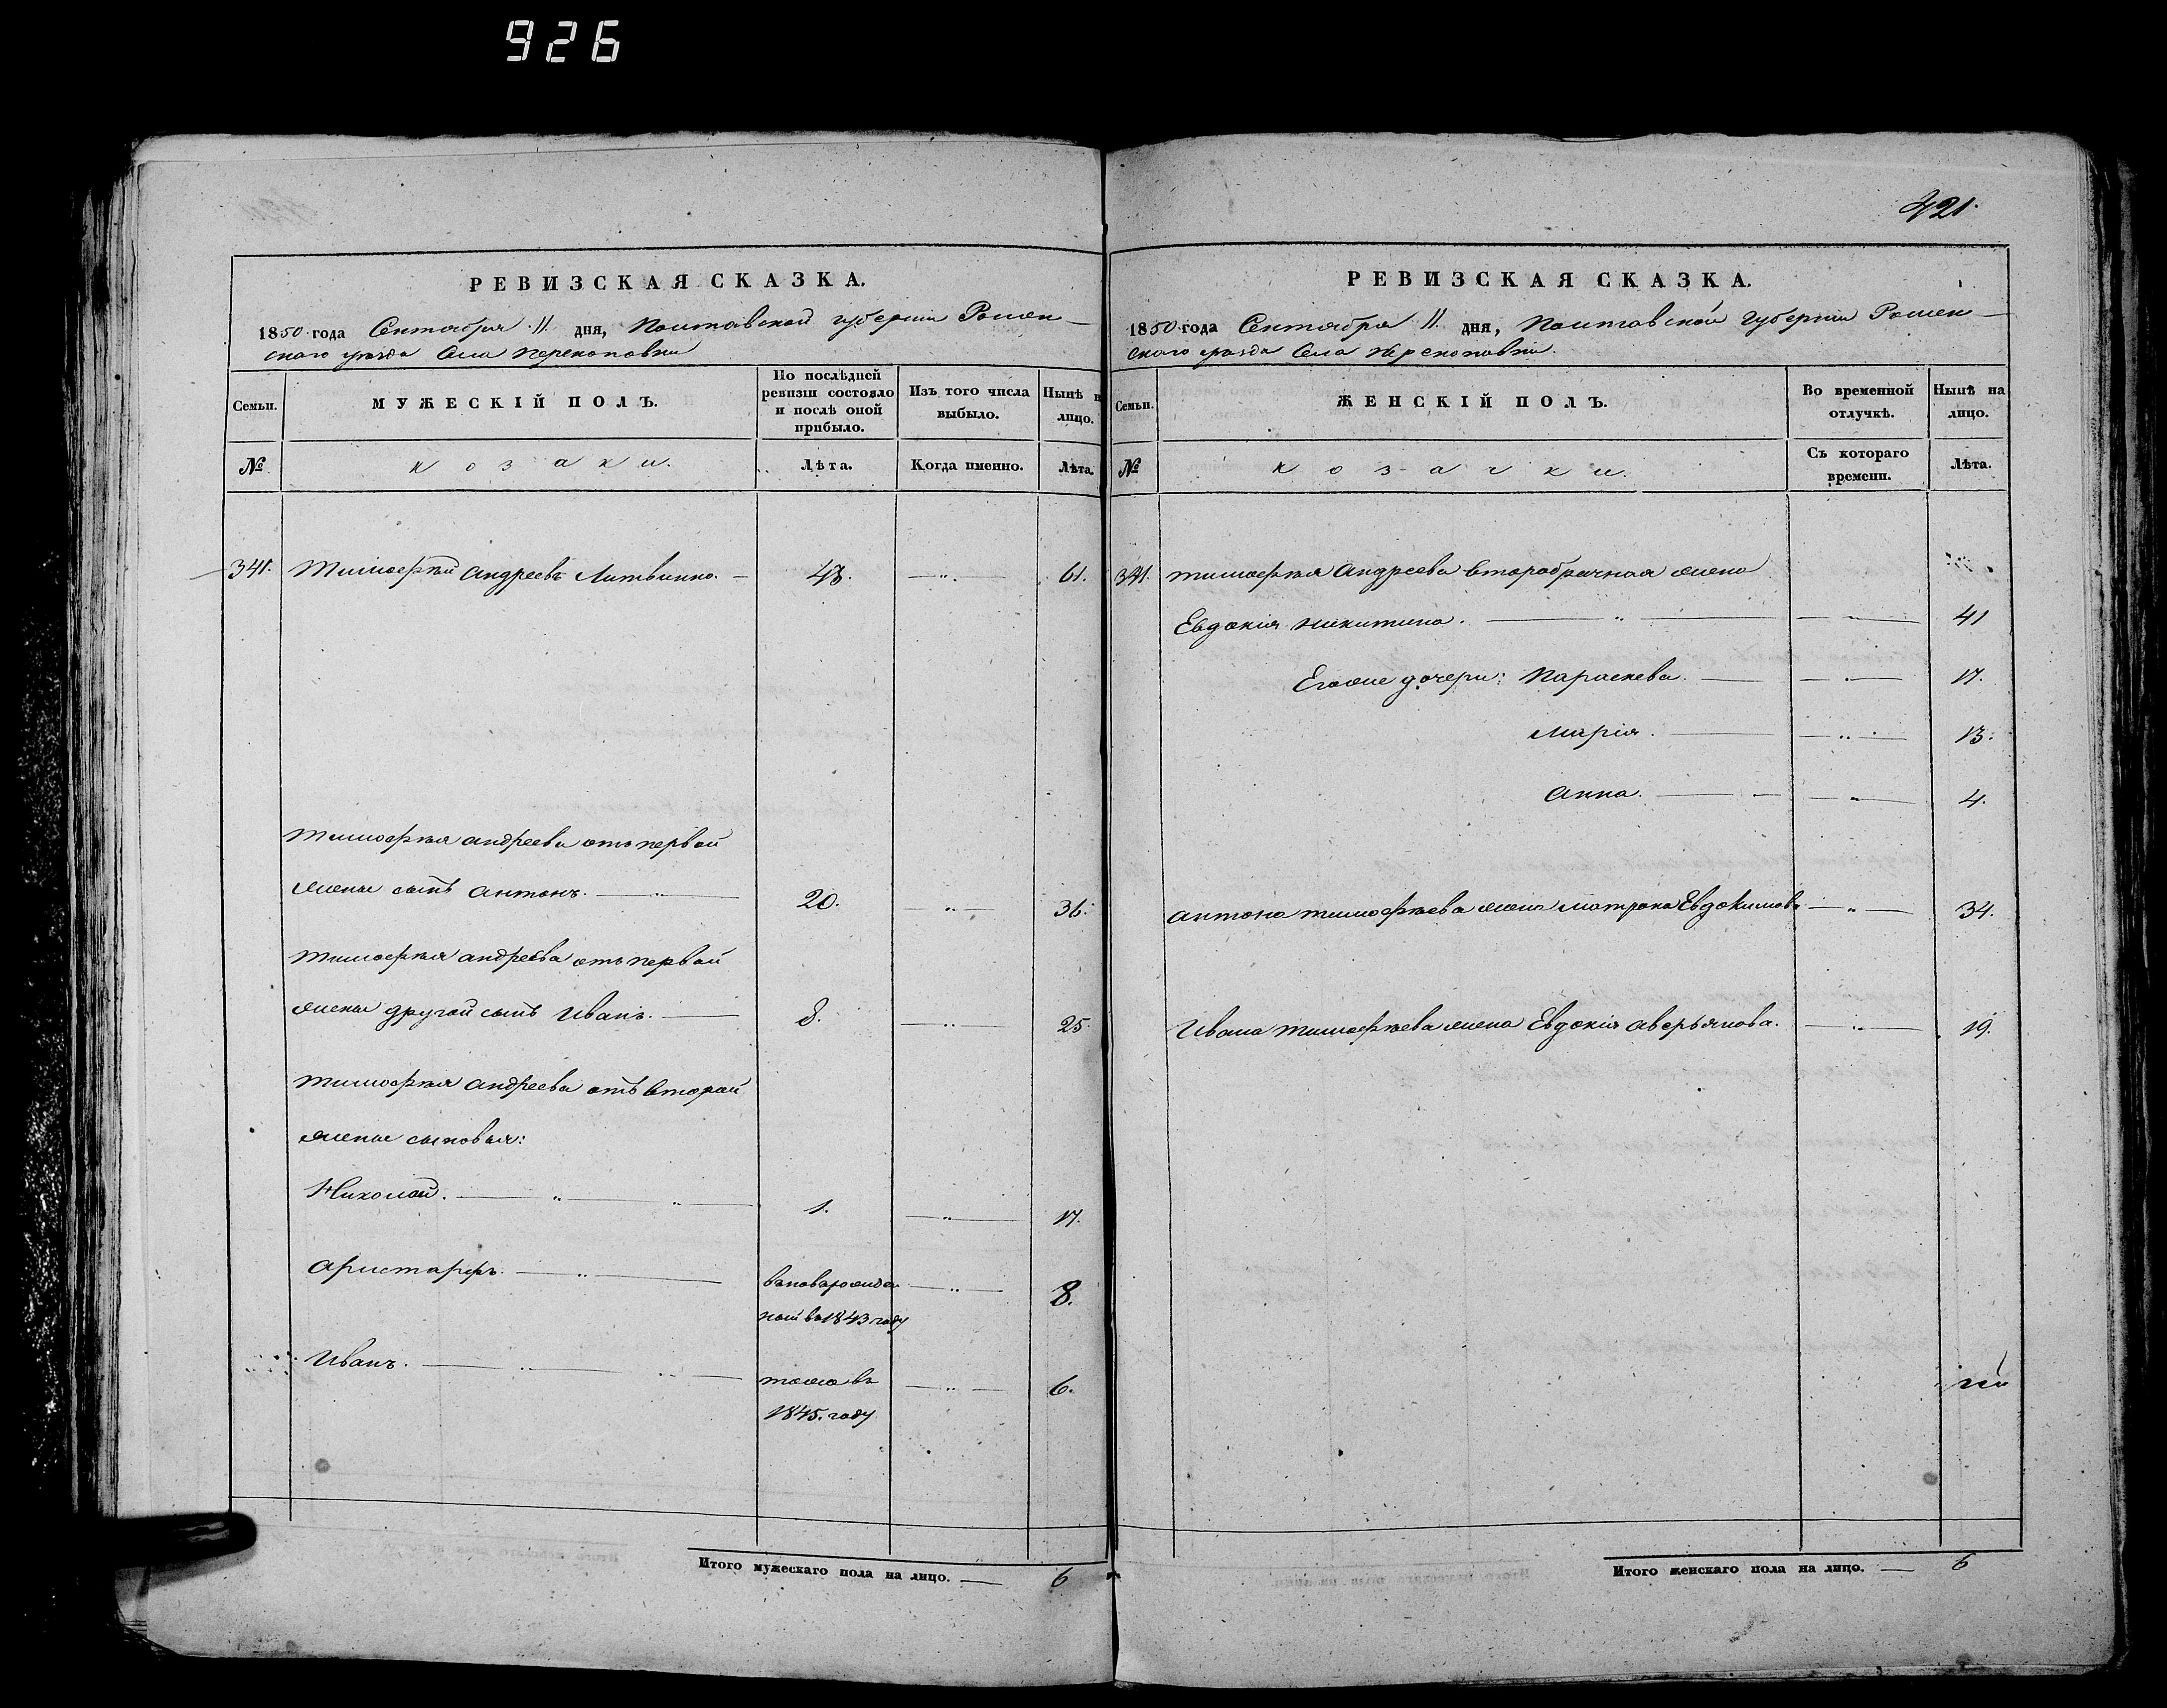 926
421.
РЕВИЗСКАЯ СКАЗКА.
1850 года Сентября 11 дня, Полтавской губерніи Ромен-
скаго уѣзда Села Перекоповки
Семьи.
МУЖЕСКІЙ ПОЛЪ.
По послѣдней ревизіи состояло и послѣ оной прибыло.
Изъ того числа выбыло.
Нынѣ на лицо.
№
козаки.
Лѣта.
Когда именно.
Лѣта.
341. Тимофѣй Андреевъ Литвинко. — 48. — 61.
Тимофѣя Андреева отъ первой
жены сынъ Антонъ. — 20. — 36.
Тимофѣя Андреева отъ первой
жены другой сынъ Иванъ. — 8. — 25.
Тимофѣя Андреева отъ второй
жены сыновья:
Николай. — 1. — 17.
Аристархъ. — 8.
ной въ 1843 году
Иванъ. — тоже въ — 6.
1845. году
Итого мужескаго пола на лицо. — 6
РЕВИЗСКАЯ СКАЗКА.
1850 года Сентября 11 дня, Полтавской Губерніи Ромен-
скаго уѣзда Села Перекоповки.
Семьи.
ЖЕНСКІЙ ПОЛЪ.
Во временной отлучкѣ.
Нынѣ на лицо.
№
козачки.
Съ котораго времени.
Лѣта.
341. Тимофѣя Андреева второбрачная жена
Евдокія Никитина. — 41
Его же дочери: Параскева. — 17.
Марія. — 13.
Анна. — 4.
Антона Тимофѣева жена Матрона Евдокимова — 34.
Ивана Тимофѣева жена Евдокія Аверьянова. — 19.
Итого женскаго пола на лицо. — 6